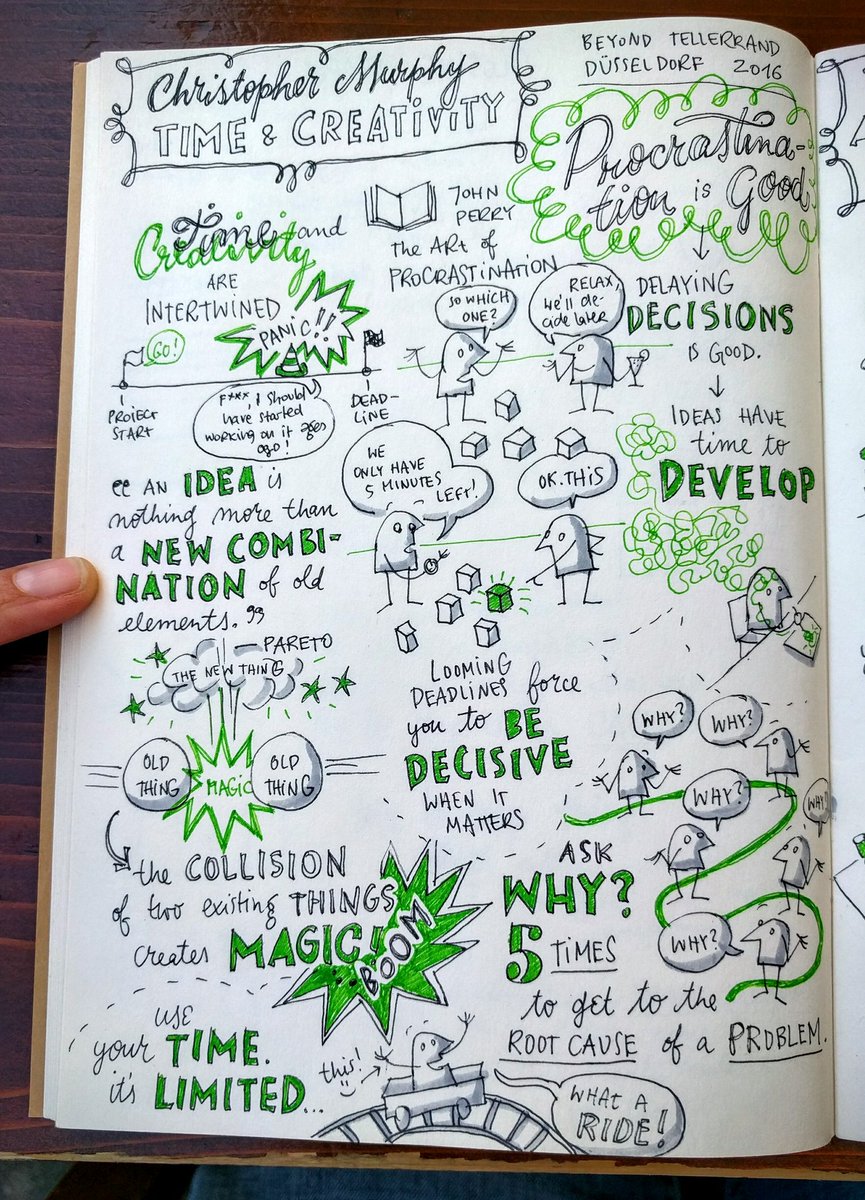 Christopher Murphy
TIME & CREATIVITY
BEYOND TELLERRAND
DÜSSELDORF 2016
Procrastina-
tion is Good
Time and
Creativity
ARE
INTERTWINED
JOHN
PERRY
the ART of
PROCRASTINATION
GO!
PANIC!!
PROJECT
START
DEAD-
LINE
F***, I should
have started
working on it ages
ago!
SO WHICH
ONE?
RELAX,
we'll de-
cide later
DELAYING
DECISIONS
IS GOOD.
IDEAS HAVE
time to
DEVELOP
WE
ONLY HAVE
5 MINUTES
LEFT!
OK. THIS
"AN IDEA is
nothing more than
a NEW COMBI-
NATION of old
elements."
— PARETO
THE NEW THING
OLD
THING
MAGIC
OLD
THING
the COLLISION
of two existing THINGS
creates MAGIC!
...BOOM
LOOMING
DEADLINES force
you to BE
DECISIVE
WHEN IT
MATTERS
WHY?
WHY?
WHY?
WHY?
WHY?
ASK
WHY?
5 TIMES
to get to the
ROOT CAUSE of a PROBLEM.
USE
your TIME.
it's LIMITED...
this!
WHAT A
RIDE!